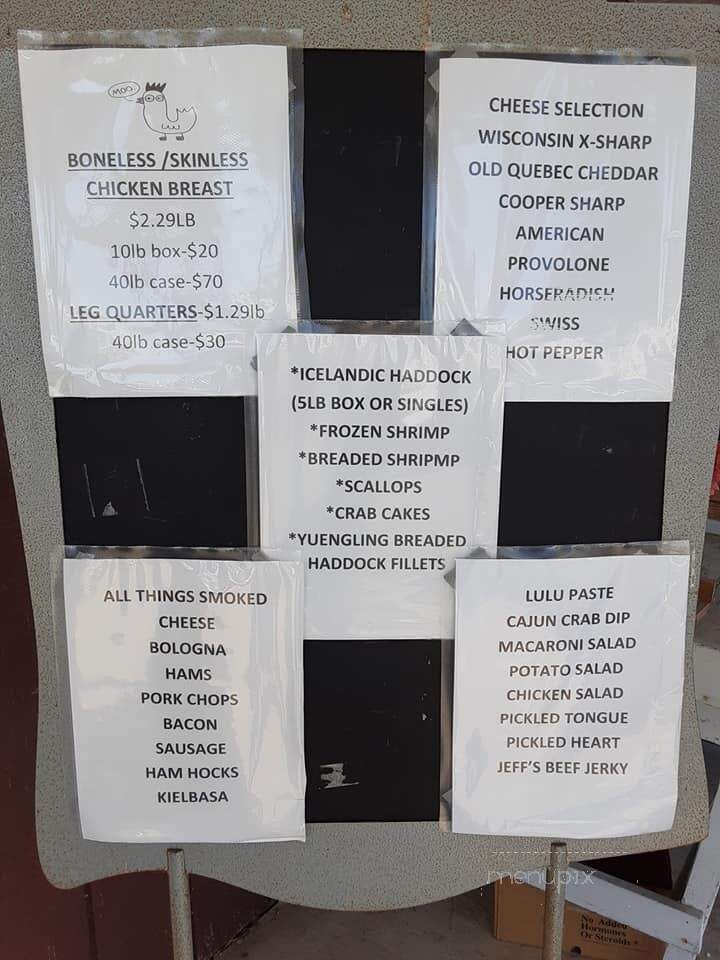 MOO.
BONELESS /SKINLESS
CHICKEN BREAST
$2.29LB
10lb box-$20
40lb case-$70
LEG QUARTERS-$1.29lb
40lb case-$30
CHEESE SELECTION
WISCONSIN X-SHARP
OLD QUEBEC CHEDDAR
COOPER SHARP
AMERICAN
PROVOLONE
HORSERADISH
SWISS
HOT PEPPER
*ICELANDIC HADDOCK
(5LB BOX OR SINGLES)
*FROZEN SHRIMP
*BREADED SHRIPMP
*SCALLOPS
*CRAB CAKES
*YUENGLING BREADED
HADDOCK FILLETS
ALL THINGS SMOKED
CHEESE
BOLOGNA
HAMS
PORK CHOPS
BACON
SAUSAGE
HAM HOCKS
KIELBASA
LULU PASTE
CAJUN CRAB DIP
MACARONI SALAD
POTATO SALAD
CHICKEN SALAD
PICKLED TONGUE
PICKLED HEART
JEFF'S BEEF JERKY
menupix
No Added
Hormones
Or Steroids *